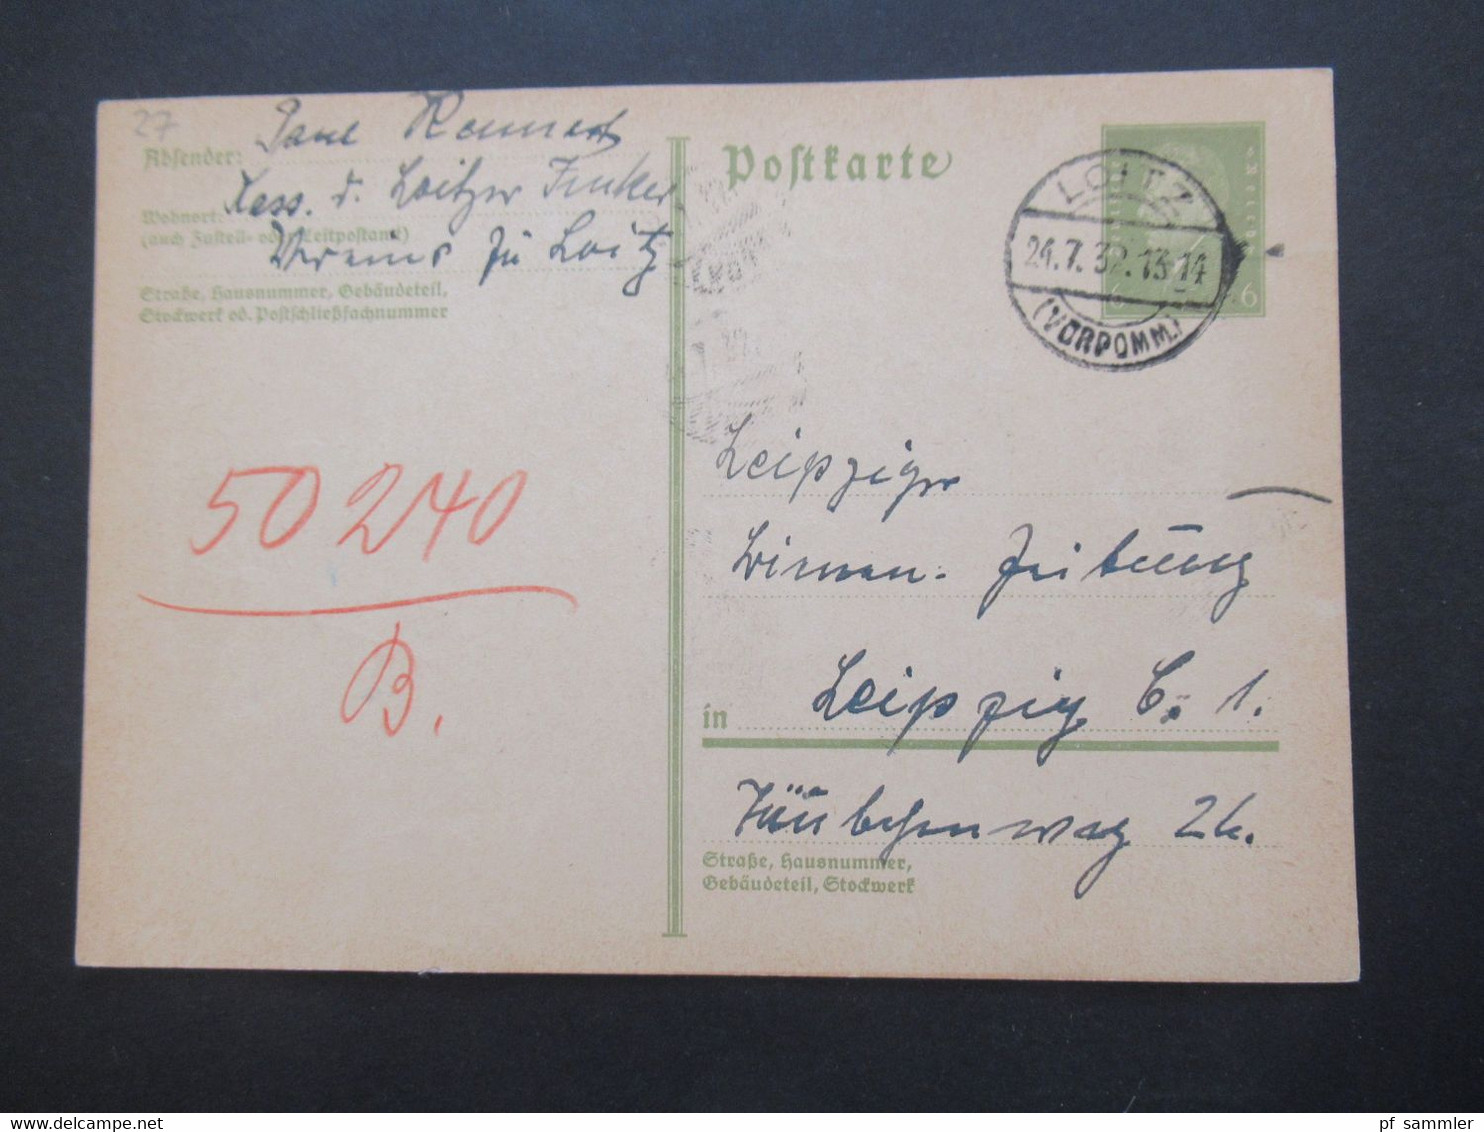 27
Absender:
Kass. d. Loitzer Imker
Wohnort:
(auch Zustell- od. Leitpostamt)
Vereins zu Loitz
Straße, Hausnummer, Gebäudeteil,
Stockwerk od. Postschließfachnummer
50240
B.
Postkarte
LOITZ
24.7.32.13-14
(VORPOMM.)
6
Leipziger
Bienen-Zeitung
in Leipzig C. 1.
Täubchenweg 26.
Straße, Hausnummer,
Gebäudeteil, Stockwerk
pf_sammler